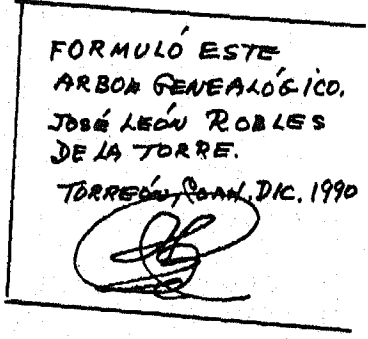 FORMULÓ ESTE
ARBOL GENEALÓGICO.
JOSÉ LEÓN ROBLES
DE LA TORRE.
TORREÓN, COAH. DIC. 1990